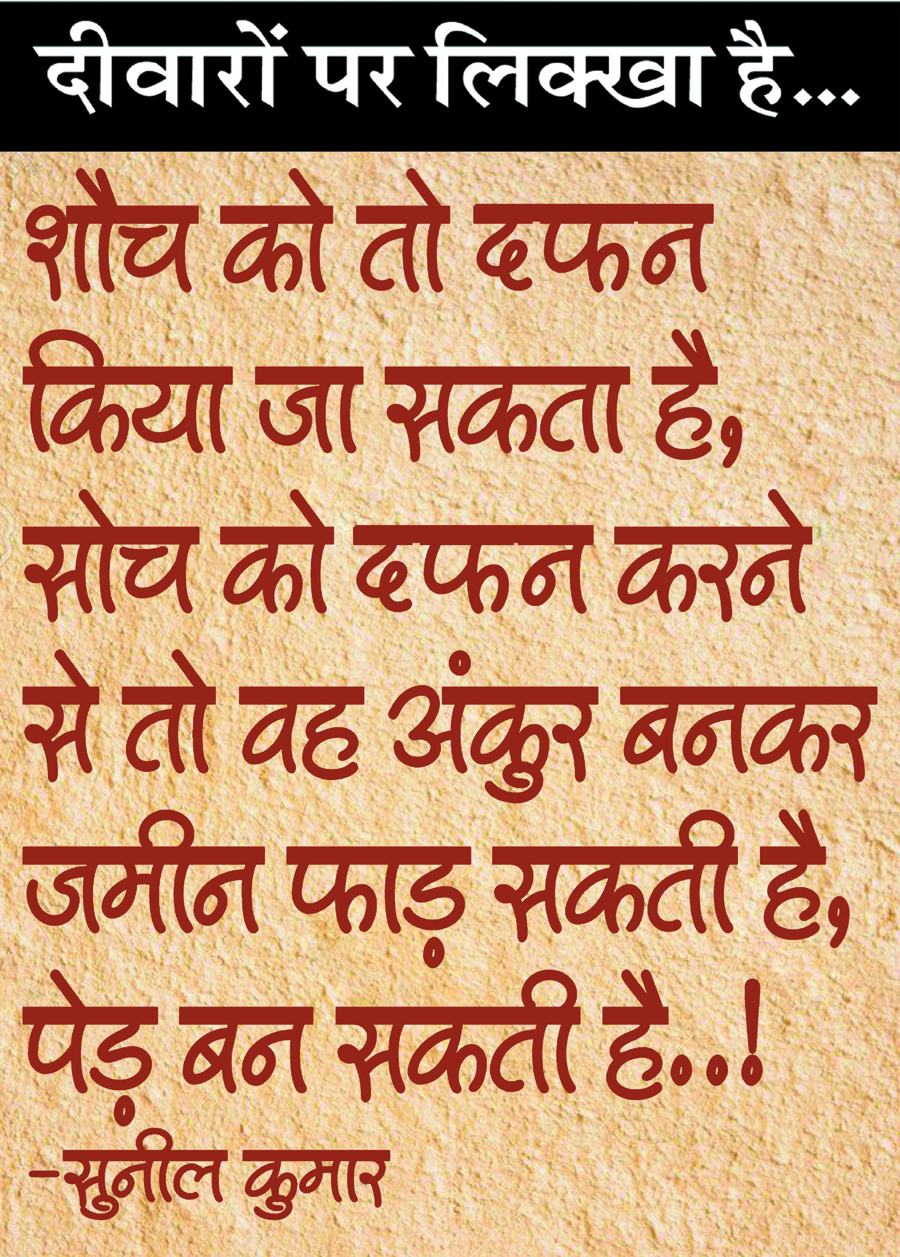 दीवारों पर लिक्खा है...
शौच को तो दफन
किया जा सकता है,
सोच को दफन करने
से तो वह अंकुर बनकर
जमीन फाड़ सकती है,
पेड़ बन सकती है..!
-सुनील कुमार